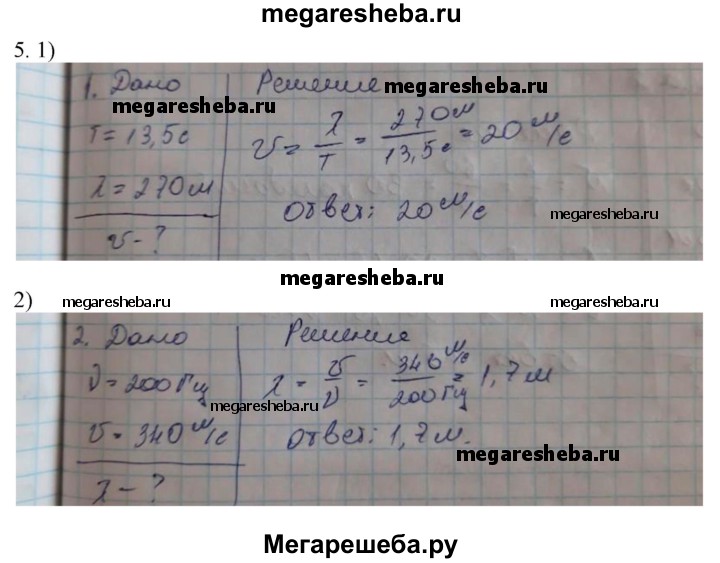 megaresheba.ru
5. 1)
1. Дано Решение megaresheba.ru
megaresheba.ru
T = 13,5 с v = λ/T = 270 м/13,5 с = 20 м/с
λ = 270 м ответ: 20 м/с megaresheba.ru
v - ?
megaresheba.ru
2) megaresheba.ru megaresheba.ru
2. Дано Решение
ν = 200 Гц λ = v/ν = 340 м/с/200 Гц = 1,7 м
megaresheba.ru
v = 340 м/с ответ: 1,7 м.
megaresheba.ru
λ - ?
megaresheba.ru
Мегарешеба.ру